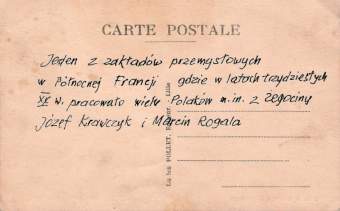 CARTE POSTALE
Jeden z zakładów przemysłowych
w Północnej Francji gdzie w latach trzydziestych
XX w. pracowało wielu Polaków m.in. z Żegociny
Józef Krawczyk i Marcin Rogala
POLLET, Lille